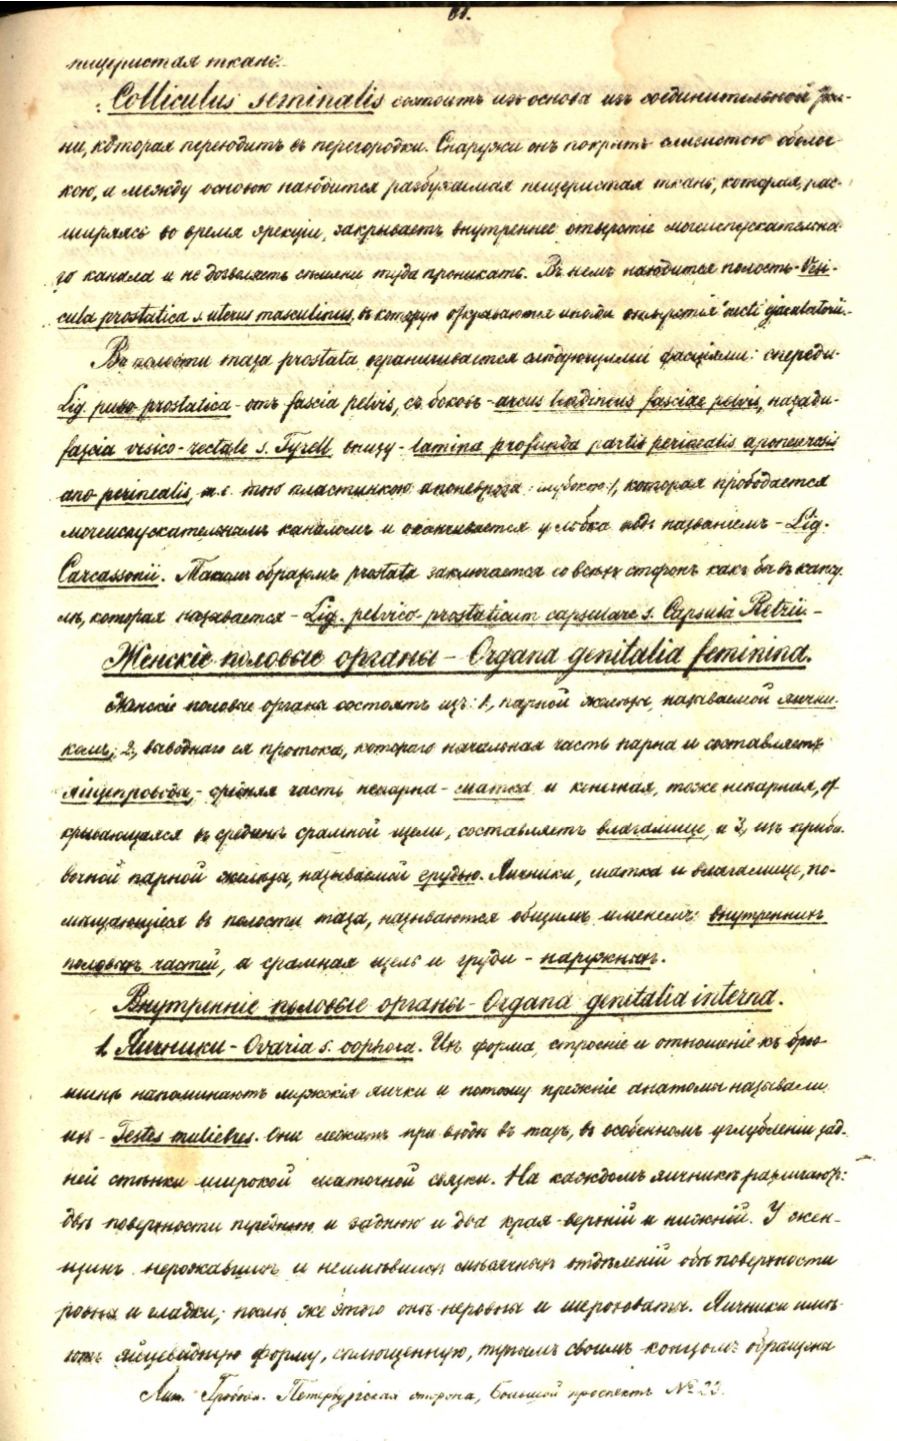 81.
пещеристая ткань.
Colliculus seminalis состоитъ изъ основа изъ соединительной тка-
ни, которая переходитъ въ перегородки. Снаружи онъ покрытъ слизистою оболоч-
кою, и между основою находится разбухаемая пещеристая ткань, которая, рас-
ширяясь во время эрекціи, закрываетъ внутреннее отверстіе мочеиспускательна-
го канала и не дозволяетъ спермѣ туда проникать. Въ немъ находится полость - Vesi-
cula prostatica s. uterus masculinus, въ которую открываются иногда отверстія ducti ejaculatorii.
Въ полости таза prostata ограничивается слѣдующими фасціями: спереди-
Lig. pubo prostatica - отъ fascia pelvis, съ боковъ - arcus tendineus fasciae pelvis, назади-
fascia vesico-rectale s. Tyrell, внизу - lamina profunda partis perinealis aponeurosis
ano-perinealis, т. е. тою пластинкою апоневроза /глубокою/, которая прободается
мочеиспускательнымъ каналомъ и оканчивается у лобка подъ названіемъ - Lig.
Carcassonii. Такимъ образомъ prostata заключается со всѣхъ сторонъ какъ бы въ капсу-
лѣ, которая называется - Lig. pelvico-prostaticum capsulare s. Capsula Retzii. -
Женскіе половые органы - Organa genitalia feminina.
Женскіе половые органы состоятъ изъ: 1, парной железы, называемой яични-
комъ; 2, выводнаго ея протока, котораго начальная часть парна и составляетъ
яйцепроводы, - средняя часть непарна - матка и конечная, тоже непарная, от-
крывающаяся въ срединѣ срамной щели, составляетъ влагалище, и 3, изъ приба-
вочной парной железы, называемой грудью. Яичники, матка и влагалище, по-
мѣщающіеся въ полости таза, называются общимъ именемъ: внутреннихъ
половыхъ частей, а срамная щель и груди - наружныхъ.
Внутренніе половые органы - Organa genitalia interna.
1. Яичники - Ovaria s. oophora. Ихъ форма, строеніе и отношеніе къ брю-
шинѣ напоминаютъ мужскія яички и потому прежніе анатомы называли
ихъ - Testes muliebres. Они лежатъ при входѣ въ тазъ, въ особенномъ углубленіи зад-
ней стѣнки широкой маточной связки. На каждомъ яичникѣ различаютъ:
двѣ поверхности переднюю и заднюю и два края - верхній и нижній. У жен-
щинъ нерожавшихъ и неимѣвшихъ мѣсячныхъ отдѣленій обѣ поверхности
ровны и гладки; послѣ же этого онѣ неровны и шероховаты. Яичники имѣ-
ютъ яйцевидную форму, сплющенную, тупымъ своимъ концомъ обращены
Лит. Гробовой. Петербургская сторона, Большой проспектъ № 23.